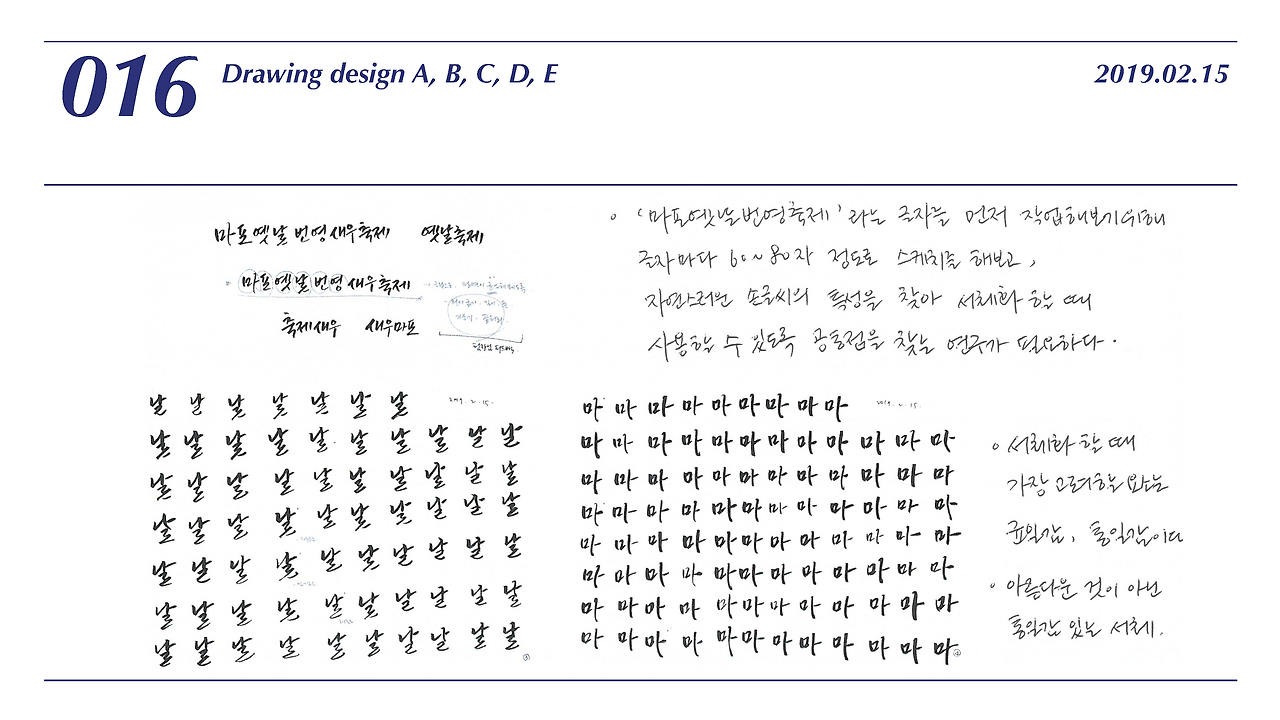 016
Drawing design A, B, C, D, E
2019.02.15
마포옛날번영새우축제 옛날축제
마포옛날번영새우축제
축제새우 새우마포
◦ '마포옛날번영축제' 라는 글자를 먼저 작업해보기위해
글자마다 60~80자 정도로 스케치를 해보고,
자연스러운 손글씨의 특성을 찾아 서체화 할 때
사용할 수 있도록 공통점을 찾는 연구가 필요하다.
날 날 날 날 날 날 날 2019. 2. 15.
날 날 날 날 날 날 날 날 날 날
날 날 날 날 날 날 날 날 날 날
날 날 날 날 날 날 날 날 날 날
날 날 날 날 날 날 날 날 날 날
날 날 날 날 날 날 날 날 날 날
날 날 날 날 날 날 날 날 날 날
③
마 마 마 마 마 마 마 마 마 2019. 2. 15.
마 마 마 마 마 마 마 마 마 마 마 마
마 마 마 마 마 마 마 마 마 마 마 마
마 마 마 마 마 마 마 마 마 마 마 마
마 마 마 마 마 마 마 마 마 마 마 마
마 마 마 마 마 마 마 마 마 마 마 마
마 마 마 마 마 마 마 마 마 마 마 마
마 마 마 마 마 마 마 마 마 마 마 마
◦ 서체화 할 때
가장 고려해야할 요소는
균일감, 통일감이다
◦ 아름다운 것이 아닌
통일감 있는 서체.